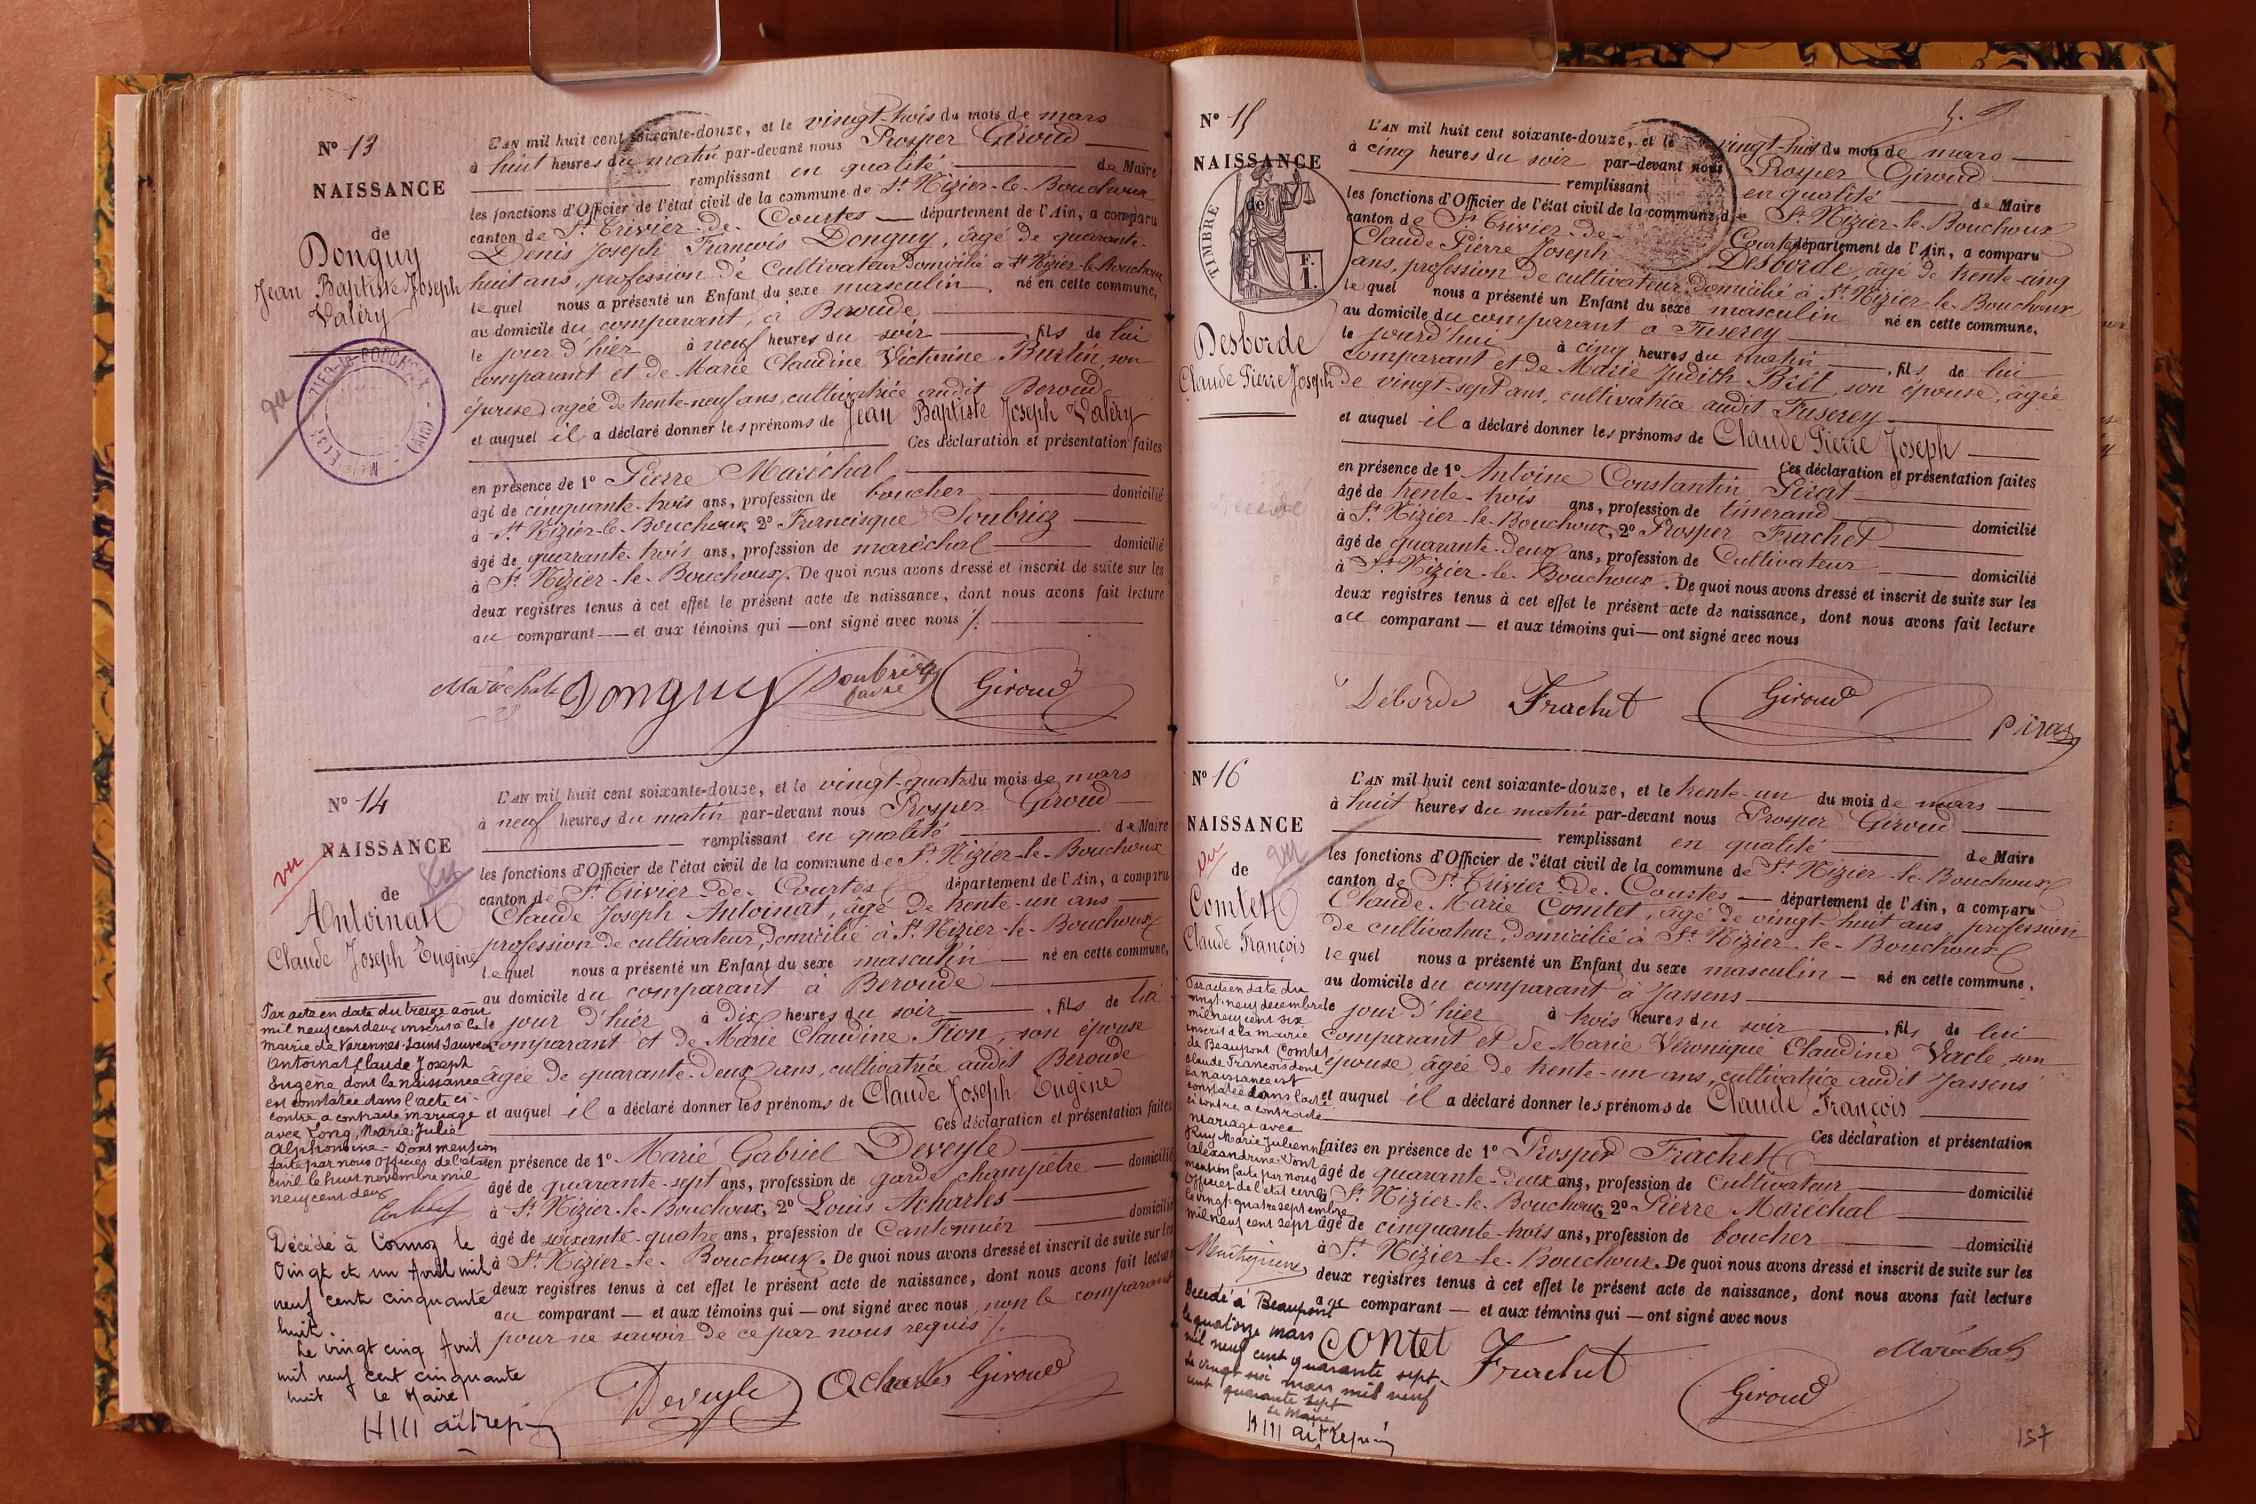 N° 13
NAISSANCE
de
Donguy
Jean Baptiste Joseph
Valéry
L'AN mil huit cent soixante-douze, et le vingt-trois du mois de mars
à huit heures du matin par-devant nous Prosper Giroud
remplissant en qualité de Maire
les fonctions d'Officier de l'état civil de la commune de St Nizier-le-Bouchoux
canton de St Trivier-de-Courtes département de l'Ain, a comparu
Denis Joseph François Donguy, âgé de quarante-
huit ans, profession de cultivateur domicilié à St Nizier-le-Bouchoux
lequel nous a présenté un Enfant du sexe masculin, né en cette commune,
au domicile du comparant, à Beroude
le jour d'hier à neuf heures du soir, fils de lui
comparant et de Marie Claudine Victorine Burtin, son
épouse, agée de trente-neuf ans, cultivatrice audit Beroude
et auquel il a déclaré donner les prénoms de Jean Baptiste Joseph Valéry
Ces déclaration et présentation faites
en présence de 1° Pierre Maréchal
âgé de cinquante-trois ans, profession de boucher domicilié
à St Nizier-le-Bouchoux 2° Francisque Soubriez
âgé de quarante-trois ans, profession de maréchal domicilié
à St Nizier-le-Bouchoux. De quoi nous avons dressé et inscrit de suite sur les
deux registres tenus à cet effet le présent acte de naissance, dont nous avons fait lecture
au comparant — et aux témoins qui — ont signé avec nous
Maréchal Donguy Giroud
N° 14
NAISSANCE
vu
de
Antoinat
Claude Joseph Eugène
L'AN mil huit cent soixante-douze, et le vingt-quatre du mois de mars
à neuf heures du matin par-devant nous Prosper Giroud
remplissant en qualité de Maire
les fonctions d'Officier de l'état civil de la commune de St Nizier-le-Bouchoux
canton de St Trivier-de-Courtes département de l'Ain, a comparu
Claude Joseph Antoinat, âgé de trente-un ans
profession de cultivateur, domicilié à St Nizier-le-Bouchoux
lequel nous a présenté un Enfant du sexe masculin — né en cette commune,
au domicile du comparant à Beroude
le jour d'hier à dix heures du soir, fils de lui
comparant et de Marie Claudine Fion, son épouse
âgée de quarante-deux ans, cultivatrice audit Beroude
et auquel il a déclaré donner les prénoms de Claude Joseph Eugène
Ces déclaration et présentation faites
en présence de 1° Marie Gabriel Deveyle
âgé de quarante-sept ans, profession de garde champêtre — domicilié
à St Nizier-le-Bouchoux, 2° Louis Acharles
âgé de soixante-quatre ans, profession de Cantonnier domicilié
à St Nizier-le-Bouchoux. De quoi nous avons dressé et inscrit de suite sur les
deux registres tenus à cet effet le présent acte de naissance, dont nous avons fait lecture
au comparant — et aux témoins qui — ont signé avec nous, non le comparant
pour ne savoir de ce par nous requis
Deveyle Acharles Giroud
Par acte en date du treize aout
mil neuf cent deux inscrit à la
mairie de Varennes-Saint Sauveur
Antoinat Claude Joseph
Eugène, dont la naissance
est constatée dans l'acte ci-
contre a contracté mariage
avec Long, Marie Julie
Alphonsine. Dont mention
faite par nous Officier de l'état
civil le huit novembre mil
neuf cent deux
Décédé à Cormoz le
Vingt et un Avril mil
neuf cent cinquante
huit.
Le vingt cinq Avril
mil neuf cent cinquante
huit le Maire
N° 15
NAISSANCE
de
TIMBRE
F.
1.
Desborde
Claude Pierre Joseph
L'AN mil huit cent soixante-douze, et le vingt-huit du mois de mars
à cinq heures du soir par-devant nous Prosper Giroud
remplissant en qualité de Maire
les fonctions d'Officier de l'état civil de la commune de St Nizier-le-Bouchoux
canton de St Trivier-de-Courtes département de l'Ain, a comparu
Claude Pierre Joseph Desborde, âgé de trente-cinq
ans, profession de cultivateur, domicilié à St Nizier-le-Bouchoux
lequel nous a présenté un Enfant du sexe masculin né en cette commune,
au domicile du comparant à Fuserey
le jourd'hui à cinq heures du matin, fils de lui
comparant et de Marie Judith Bilt, son épouse, âgée
de vingt-sept ans, cultivatrice audit Fuserey
et auquel il a déclaré donner les prénoms de Claude Pierre Joseph
Ces déclaration et présentation faites
en présence de 1° Antoine Constantin Pirat
âgé de trente-trois ans, profession de tisserand domicilié
à St Nizier-le-Bouchoux, 2° Prosper Frachet
âgé de quarante-deux ans, profession de Cultivateur domicilié
à St Nizier-le-Bouchoux. De quoi nous avons dressé et inscrit de suite sur les
deux registres tenus à cet effet le présent acte de naissance, dont nous avons fait lecture
au comparant — et aux témoins qui — ont signé avec nous
Déborde Frachet Giroud Pirat
N° 16
NAISSANCE
vu
de
Comtet
Claude François
L'AN mil huit cent soixante-douze, et le trente-un du mois de mars
à huit heures du matin par-devant nous Prosper Giroud
remplissant en qualité de Maire
les fonctions d'Officier de l'état civil de la commune de St Nizier-le-Bouchoux
canton de St Trivier-de-Courtes — département de l'Ain, a comparu
Claude Marie Comtet, âgé de vingt-huit ans, profession
de cultivateur, domicilié à St Nizier-le-Bouchoux
lequel nous a présenté un Enfant du sexe masculin — né en cette commune,
au domicile du comparant à Jassens
le jour d'hier à trois heures du soir, fils de lui
comparant et de Marie Véronique Claudine Vacle, son
épouse, âgée de trente-un ans, cultivatrice audit Jassens
et auquel il a déclaré donner les prénoms de Claude François
Ces déclaration et présentation
faites en présence de 1° Prosper Frachet
âgé de quarante-deux ans, profession de Cultivateur domicilié
à St Nizier-le-Bouchoux 2° Pierre Maréchal
âgé de cinquante-trois ans, profession de boucher domicilié
à St Nizier-le-Bouchoux. De quoi nous avons dressé et inscrit de suite sur les
deux registres tenus à cet effet le présent acte de naissance, dont nous avons fait lecture
au comparant — et aux témoins qui — ont signé avec nous
Contet Frachet Giroud Maréchal
Par acte en date du
vingt-neuf decembre
mil neuf cent six
inscrit à la mairie
de Beaupont Comtet
Claude François dont
la naissance est
constatée dans l'acte
ci contre a contracté
mariage avec
Ruy Marie Julienne
Alexandrine. Dont
mention faite par nous
Officier de l'état civil
le vingt-quatre septembre
mil neuf cent sept
Décédé à Beaupont
le quatorze mars
mil neuf cent quarante sept.
Le vingt six mars mil neuf
cent quarante sept
Le Maire
157